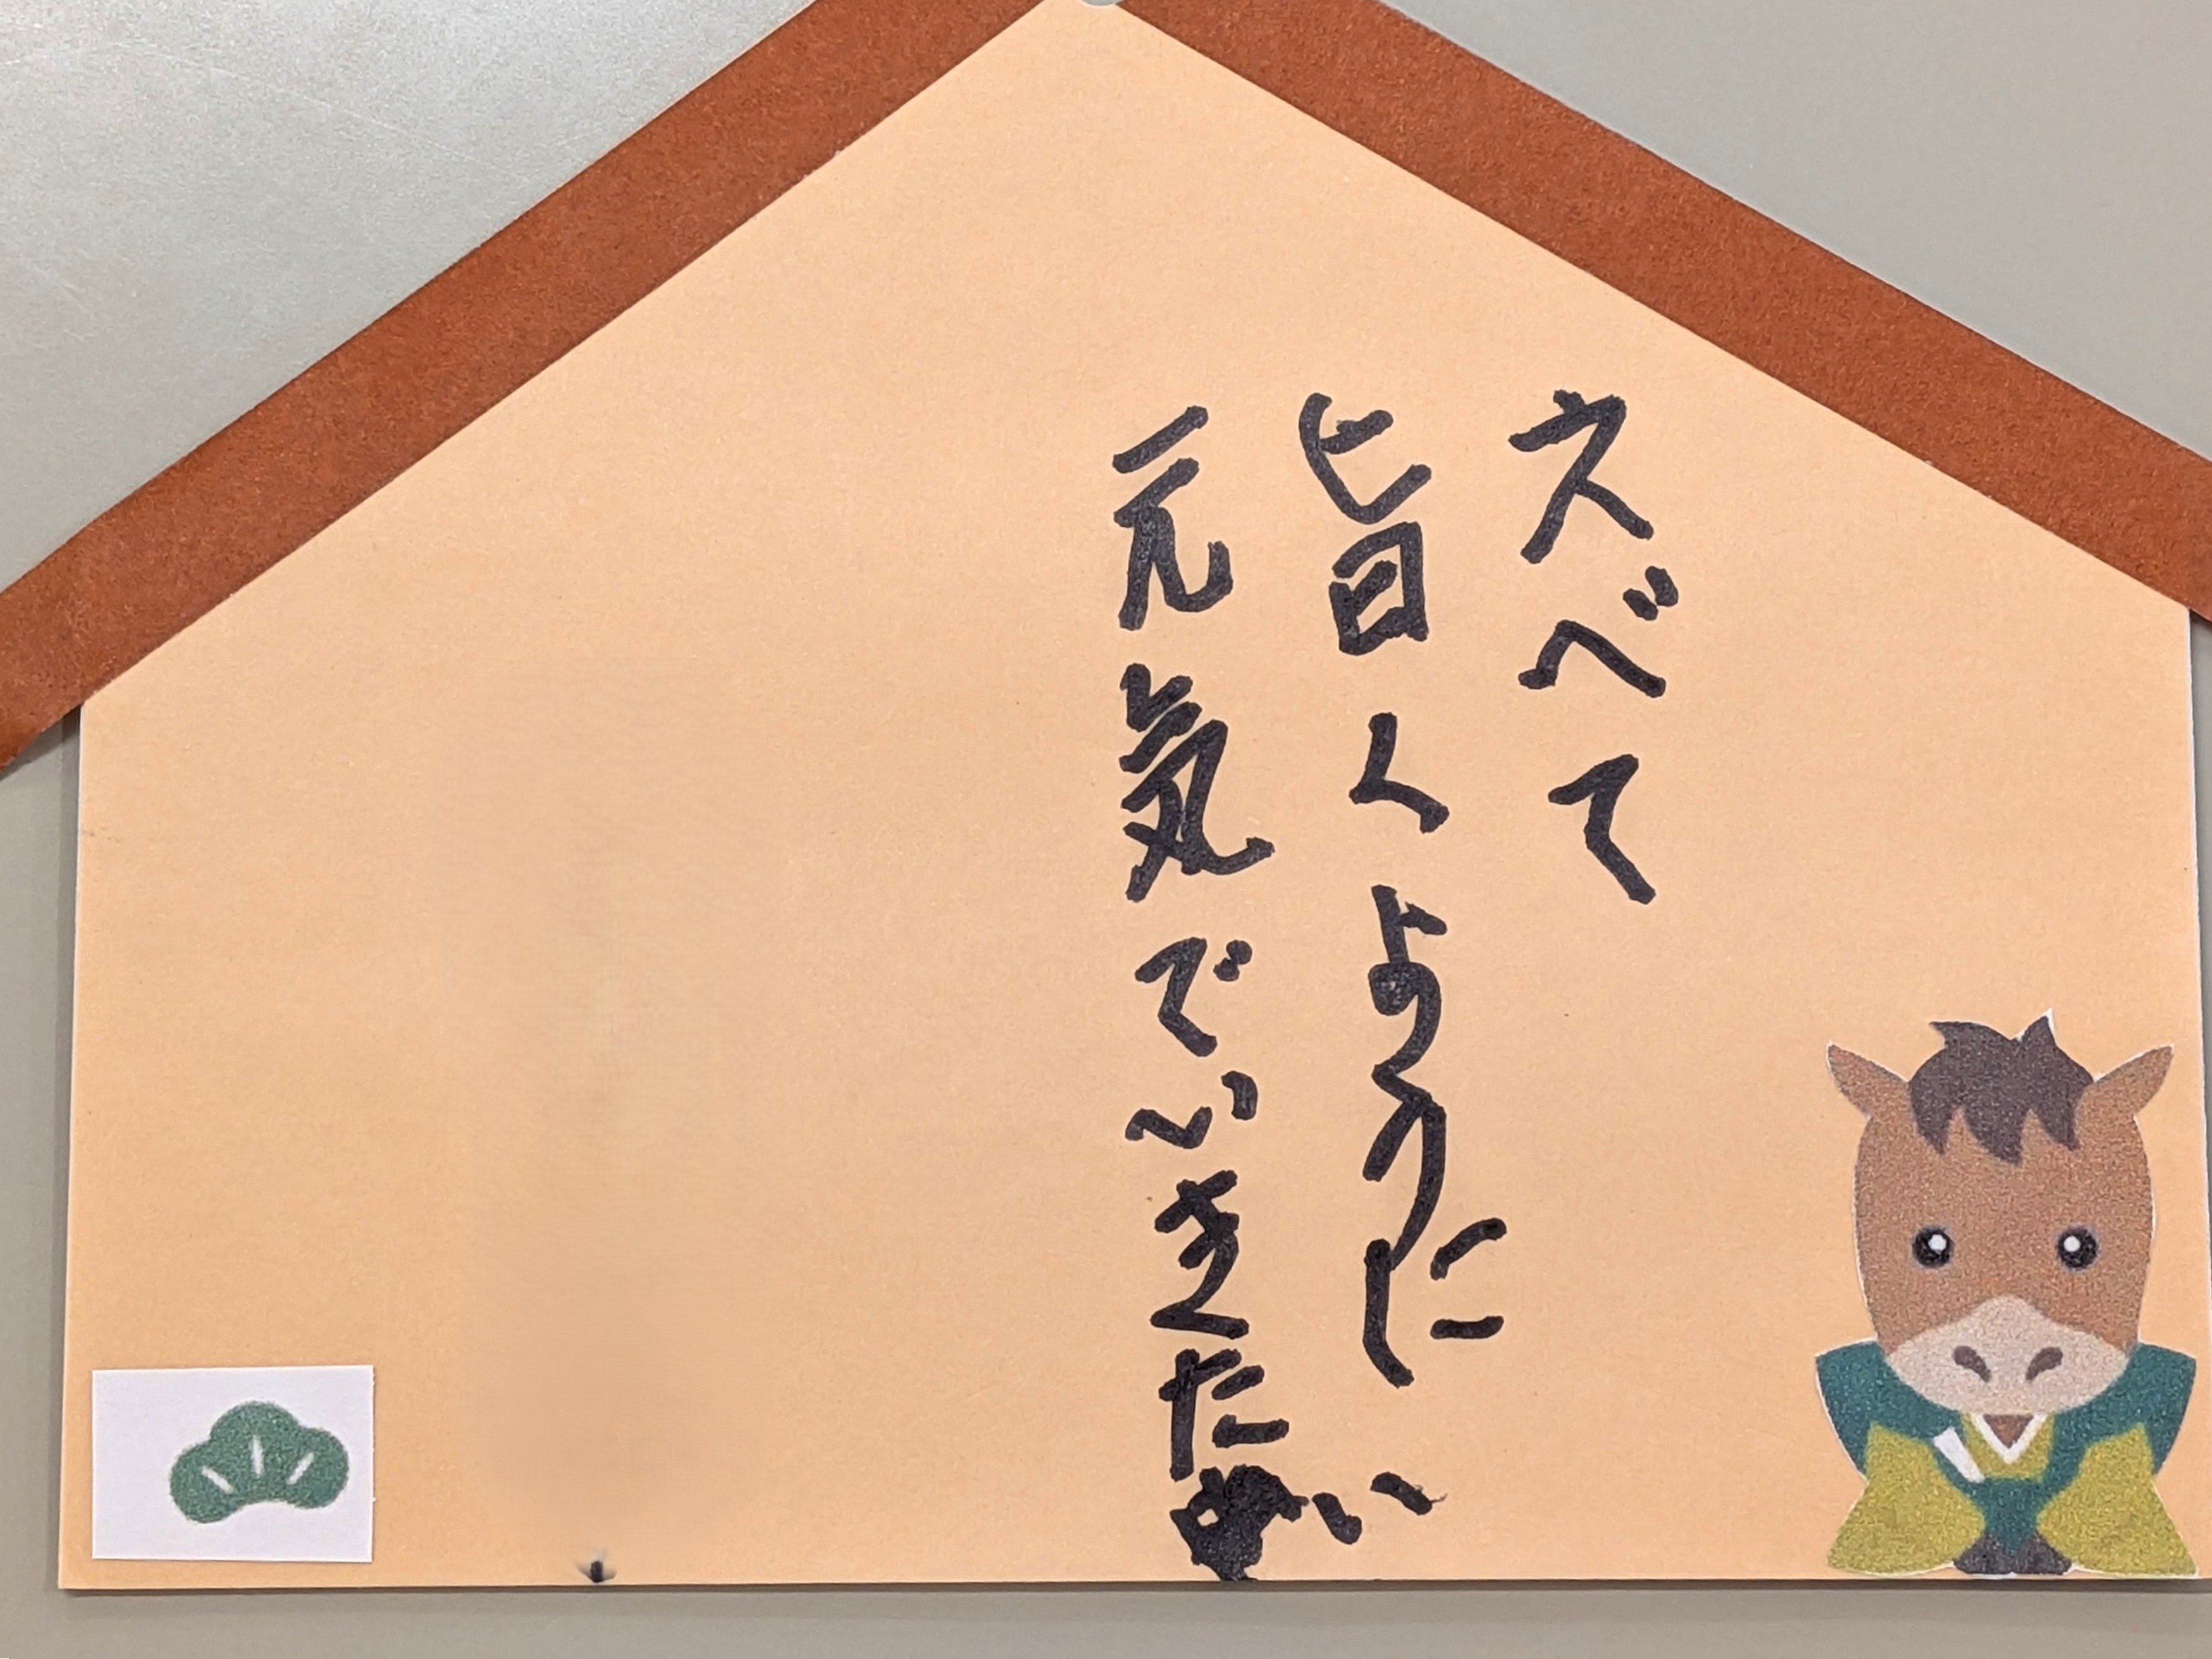 スベて
旨くように
元気でいきたい